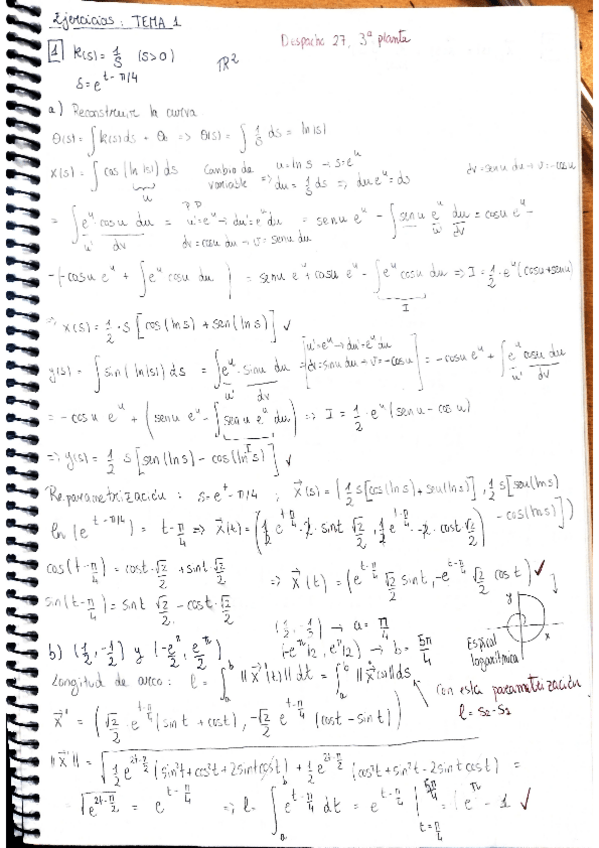 Ejercicios: TEMA 1
Despacho 27, 3ª planta
1 k(s)= 1/s (s>0) ℝ²
s=e^{t-π/4}
a) Reconstruir la curva
θ(s)= ∫k(s)ds + θ₀ => θ(s)= ∫ 1/s ds = ln|s|
x(s)= ∫ cos(ln|s|) ds Cambio de variable => u=ln s → s=e^u du= 1/s ds => du e^u=ds dv=senu du → v=-cosu
= ∫ e^u cosu du = u'=e^u → du'=e^u du dv=cosu du → v=senu = senu e^u - ∫ senu e^u du = cosu e^u -
-(-cosu e^u + ∫ e^u cosu du) = senu e^u + cosu e^u - ∫ e^u cosu du => I= 1/2 · e^u (cosu+senu)
I
=> x(s)= 1/2 · s [cos(ln s) + sen(ln s)] ✓
y(s)= ∫ sin(ln|s|) ds = ∫ e^u · sinu du = [u'=e^u → du'=e^u du dv=sinu du → v=-cosu] = -cosu e^u + ∫ e^u cosu du
= -cosu e^u + (senu e^u - ∫ senu e^u du) => I = 1/2 · e^u (senu - cosu)
I
=> y(s)= 1/2 s [sen(ln s) - cos(ln s)] ✓
Reparametrización: s=e^{t-π/4}; x⃗(s)= (1/2 s[cos(ln s)+sen(ln s)], 1/2 s[sen(ln s) - cos(ln s)])
ln(e^{t-π/4}) = t-π/4 => x⃗(t)= (1/2 e^{t-π/4} · 2 · sint √2/2, 1/2 e^{t-π/4} · -2 · cost √2/2)
cos(t-π/4) = cost·√2/2 + sint·√2/2
=> x⃗(t) = (e^{t-π/4} √2/2 sint, -e^{t-π/4} √2/2 cost) ✓
sin(t-π/4) = sint √2/2 - cost·√2/2
y x
Espiral logarítmica
b) (1/2, -1/2) y (-e^π/2, e^π/2) (1/2, -1/2) → a= π/4
(-e^π/2, e^π/2) → b= 5π/4
Longitud de arco: l= ∫_a^b ||x⃗'(t)|| dt = ∫_a^b ||x⃗(s)|| ds
con esta parametrización l=s₂-s₂
x⃗' = (√2/2 · e^{t-π/4} (sint + cost), -√2/2 e^{t-π/4} (cost - sint))
||x⃗'|| = √(1/2 e^{2t-π/2} (sin²t+cos²t+2sintcost) + 1/2 e^{2t-π/2} (cos²t+sin²t-2sintcost) =
= √(e^{2t-π/2}) = e^{t-π/4} => l= ∫_a^b e^{t-π/4} dt = e^{t-π/4} |_{t=π/4}^{5π/4} = e^π - 1 ✓